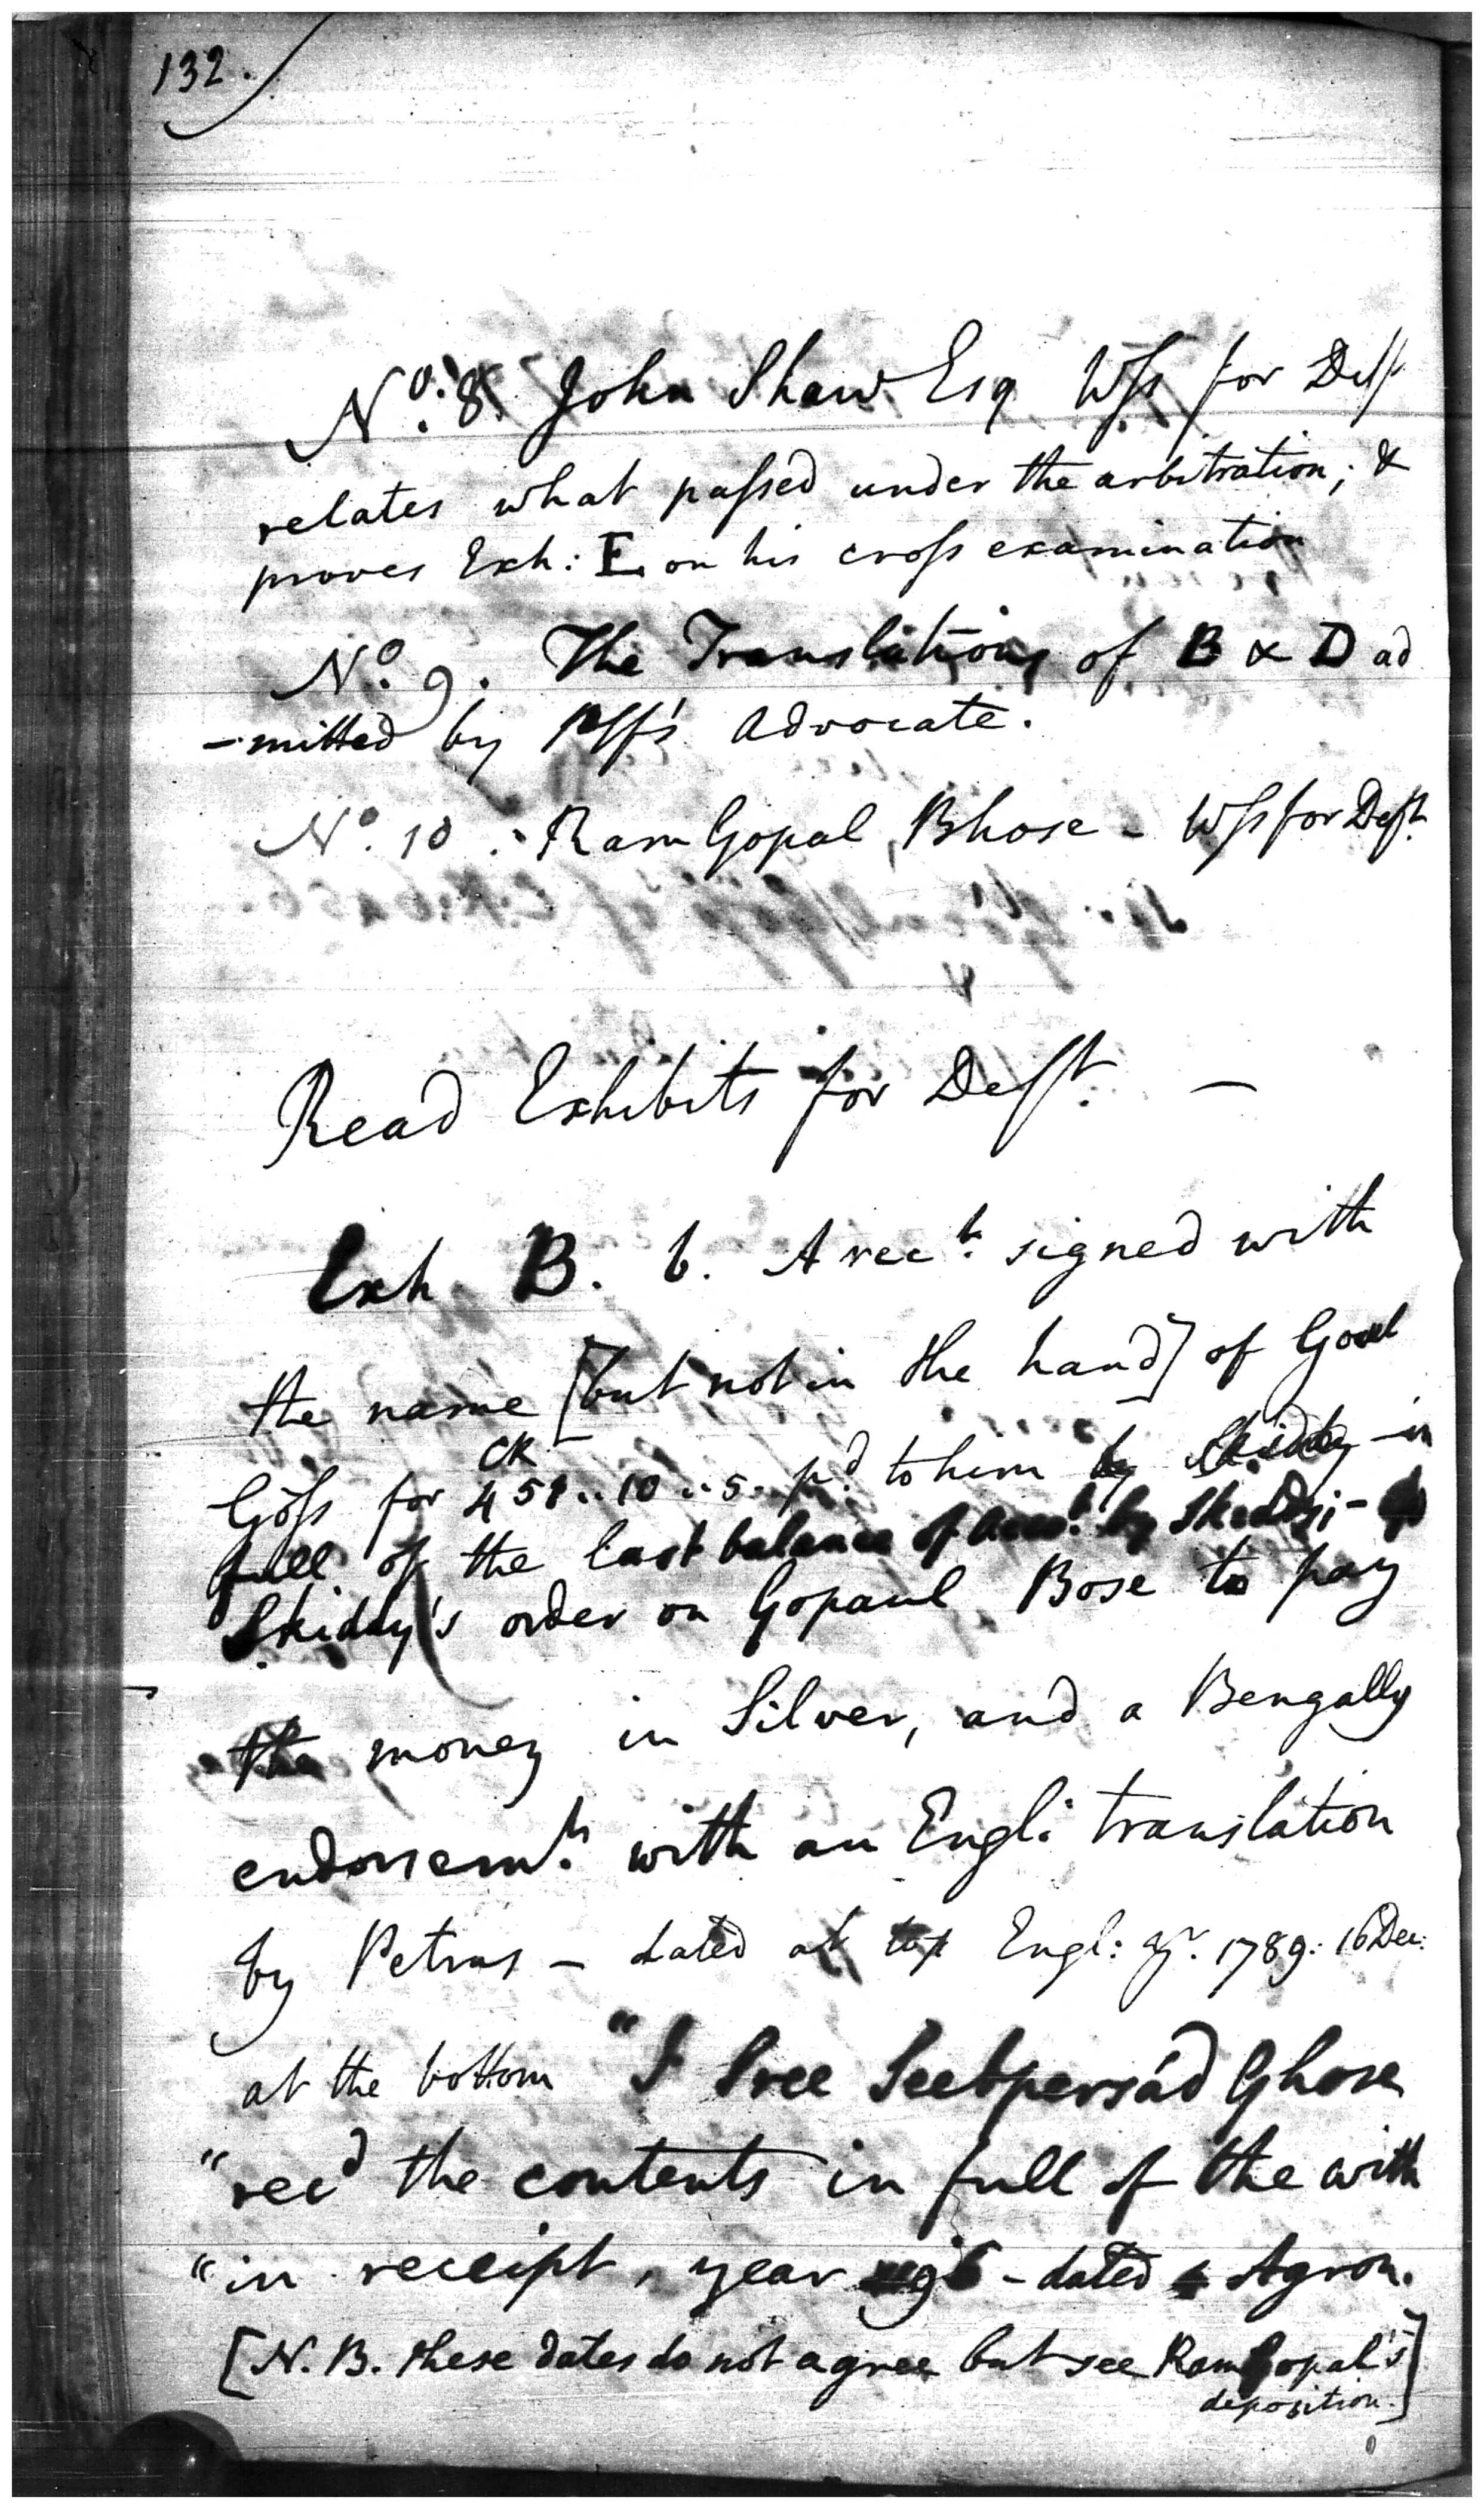 132.
No. 8. John Shaw Esq Wſs for Deft
relates what paſsed under the arbitration; &
proves Exh: E on his croſs examination
No. 9. The Translations of B & D ad
-mitted by Plff's Advocate.
No. 10. Ram Gopal Bhose - Wſs for Deft
Read Exhibits for Deft. -
Exh B. b. A rect. signed with
the name [but not in the hand] of Goul
CR
Goſs for 458..10..5. pd. to him by Skiddy - in
full of the last balance of acct. by Skiddy; -
Skiddy's order on Gopaul Bose to pay
the money in Silver, and a Bengally
endorsemt. with an Engl: translation
by Petrus - dated at top Engl: yr. 1789. 16 Dec:
at the bottom "I Sree Seetpersád Ghose
"recd the contents in full of the with
"in receipt, year 96 - dated Agron.
[N.B. these dates do not agree but see Ram Gopal's
deposition.]